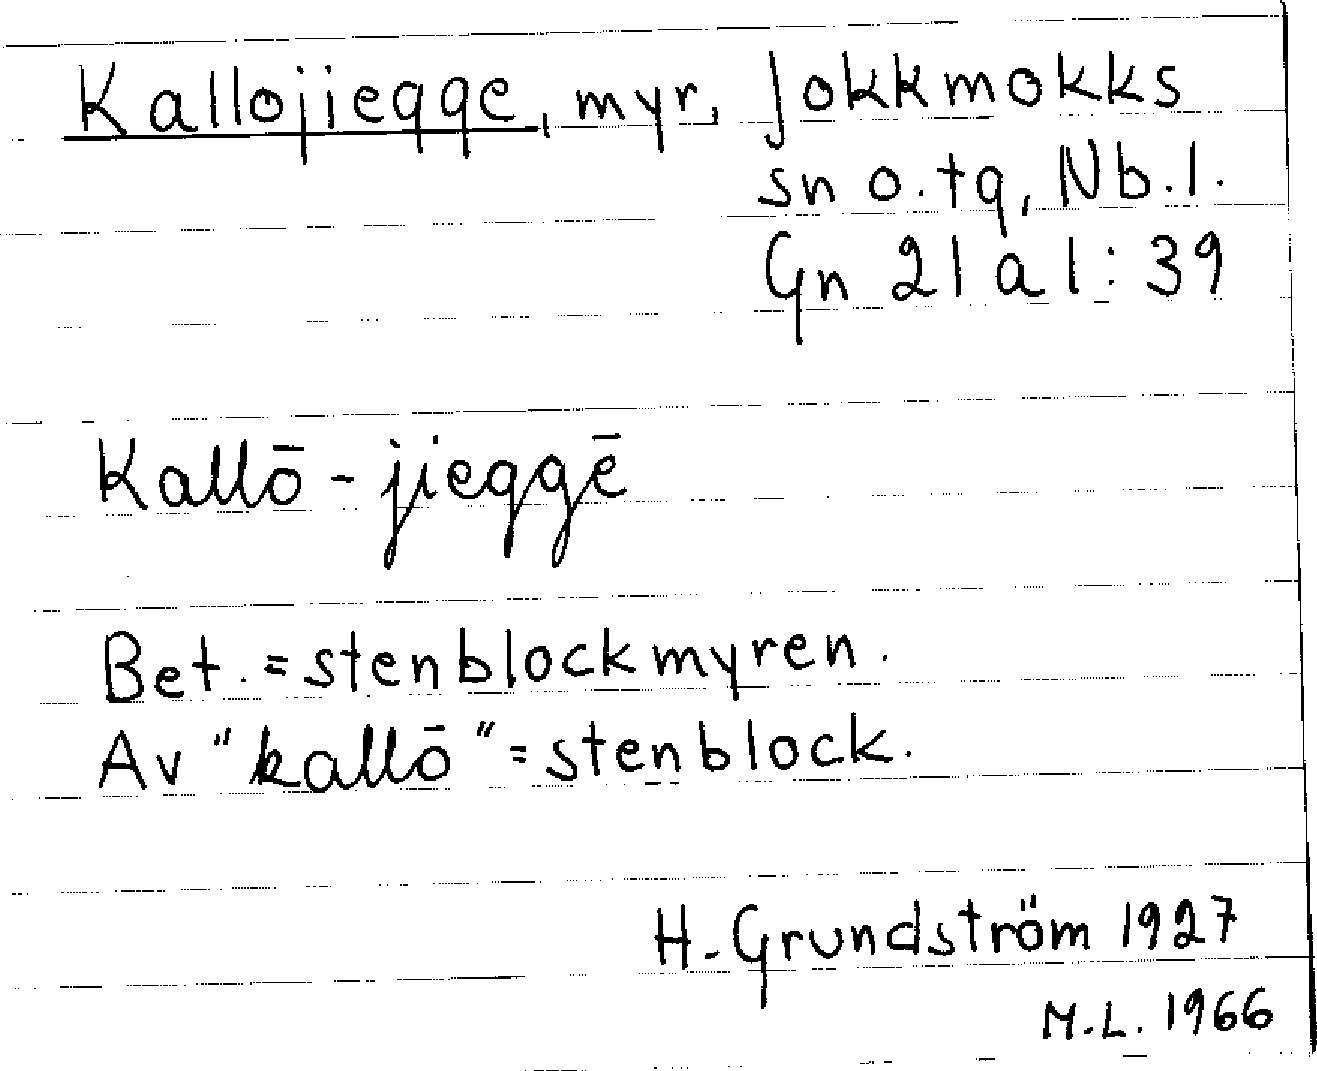 Kallojiegge, myr, Jokkmokks
sn o. tg, Nb. l.
Gn 21 a 1: 39
Kallō-jieggē
Bet. = stenblockmyren.
Av "kallō" = stenblock.
H. Grundström 1927
M.L. 1966